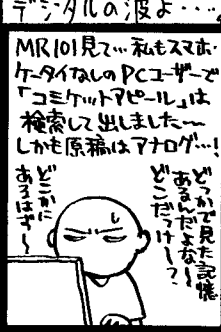 デジタルの波よ・・・・
MR101見て…私もスマホ・
ケータイなしのPCユーザーで
「コミケットアピール」は
検索して出しました〜〜
しかも原稿はアナログ…!
どっかで見た記憶
あるんだよな〜
どこだっけ〜?
どこかに
あるはず〜